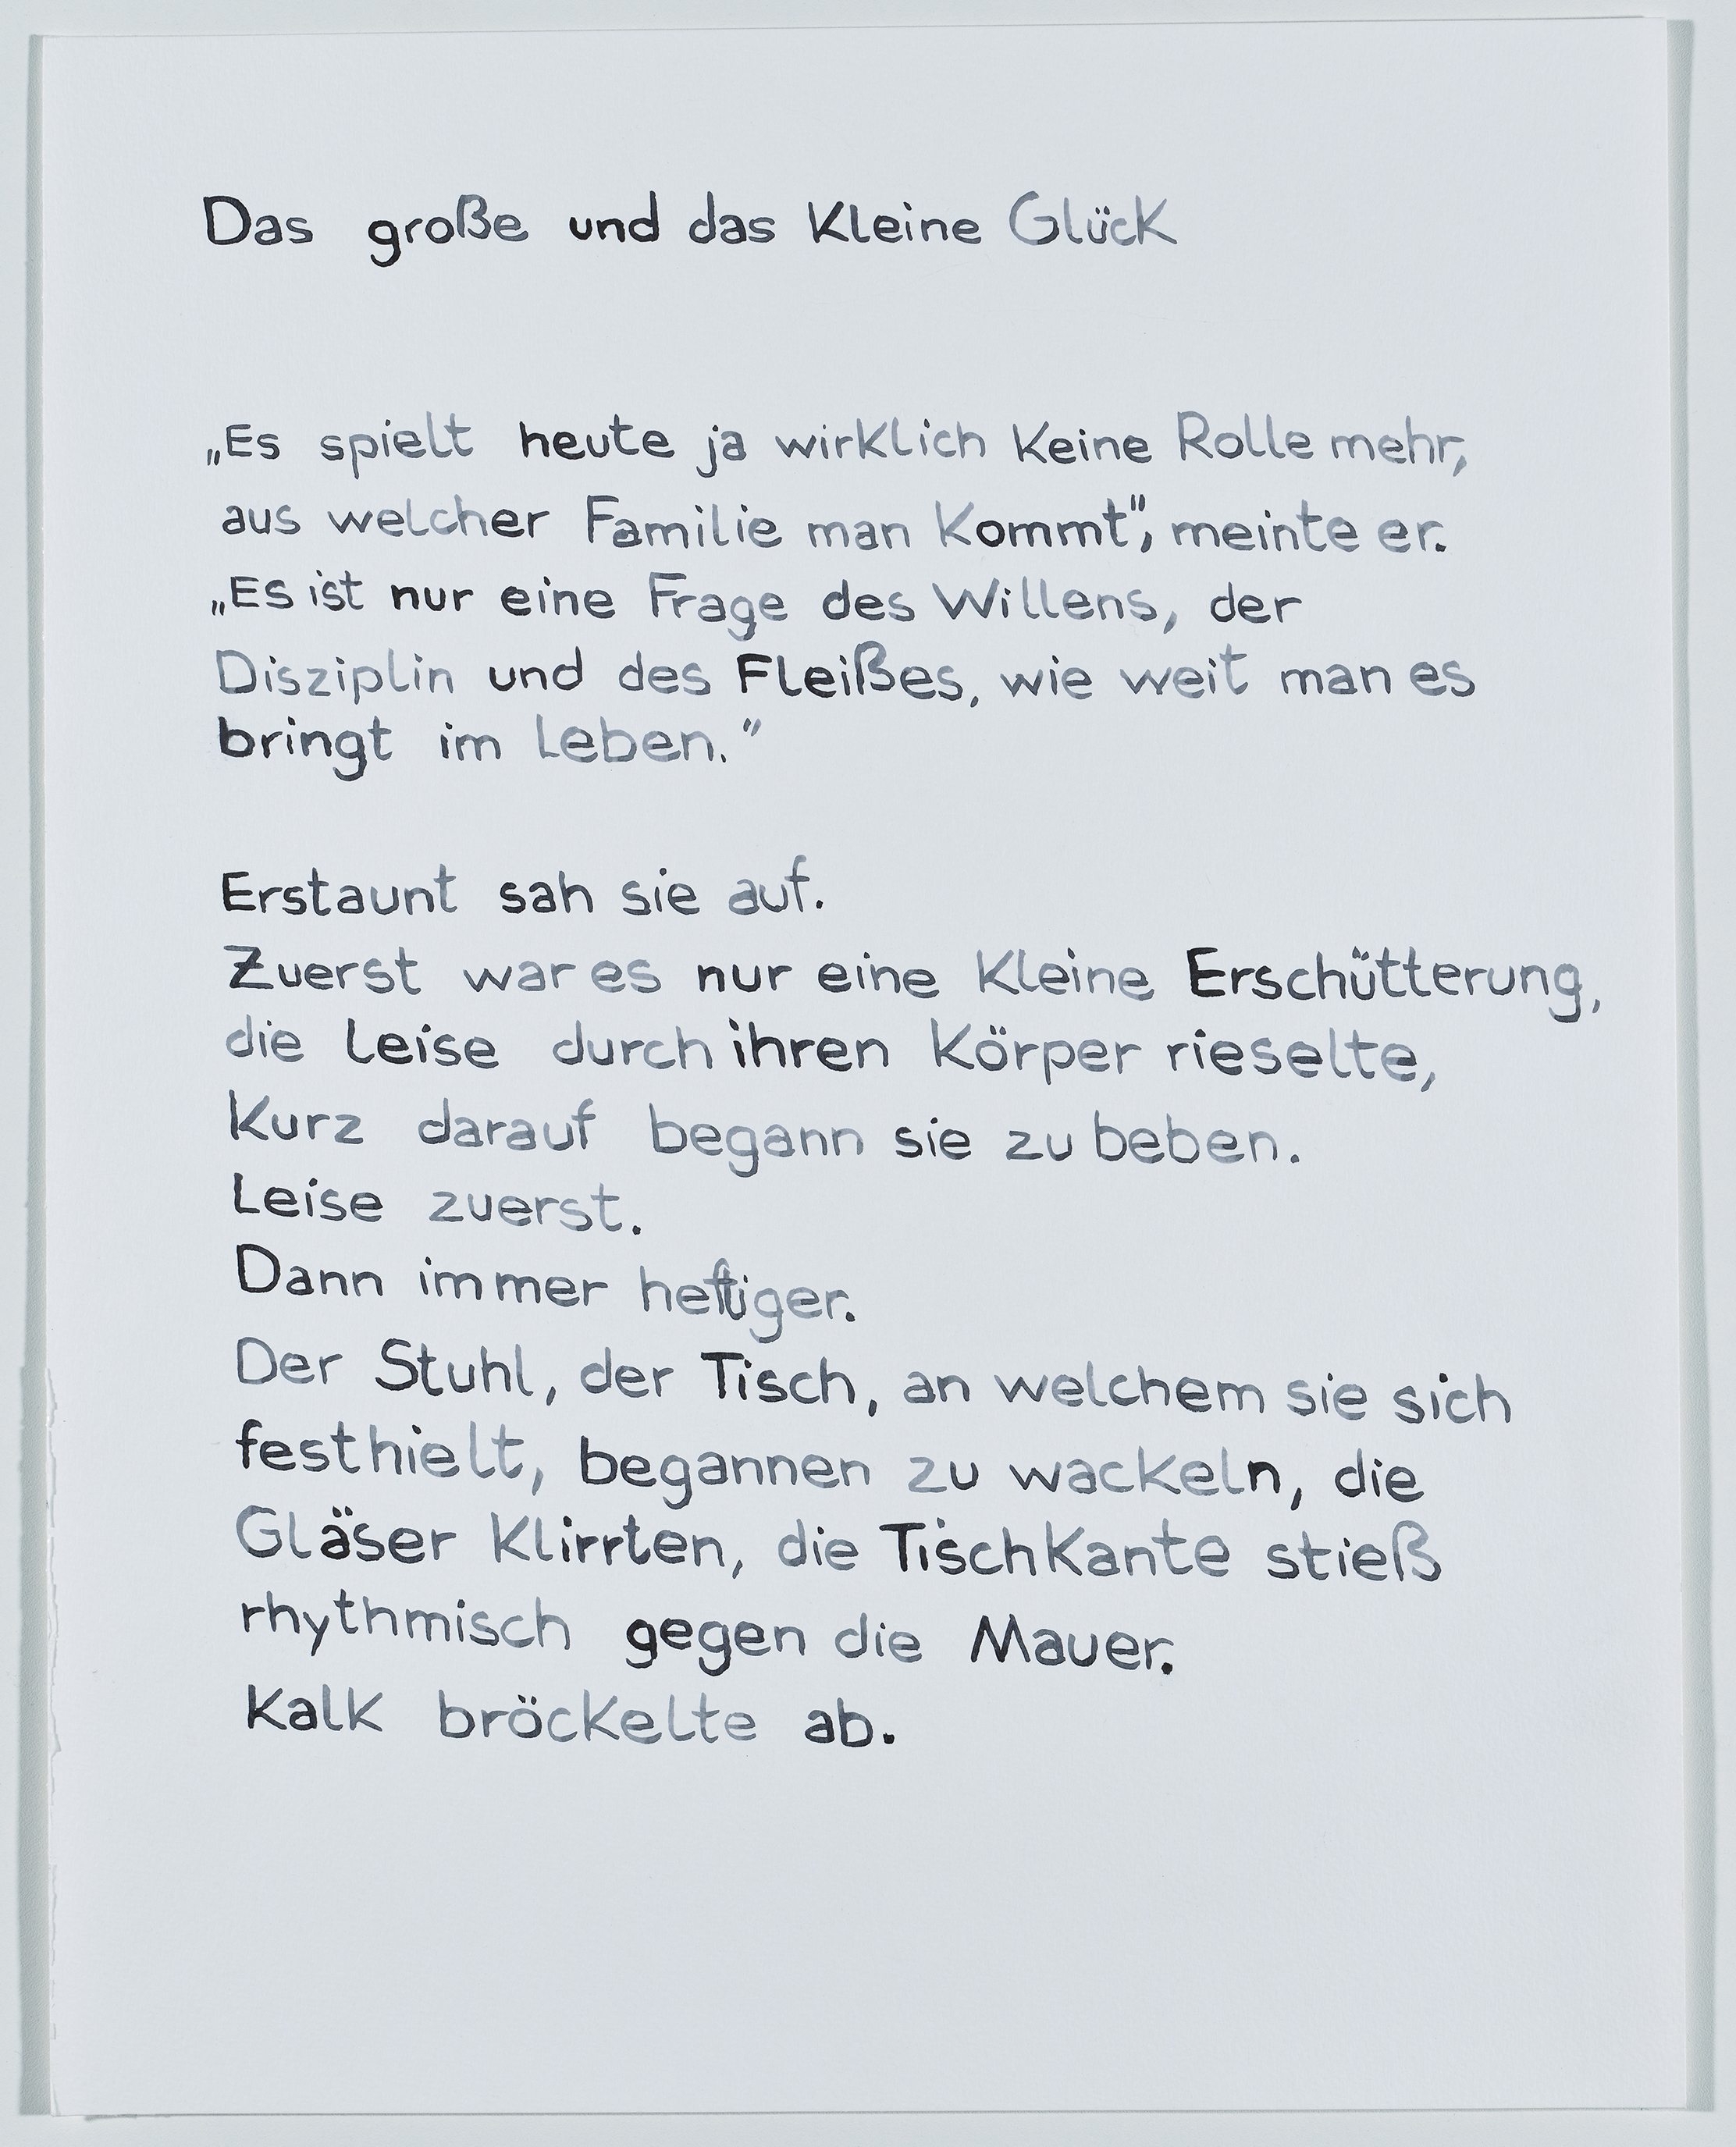 Das große und das kleine Glück
„Es spielt heute ja wirklich keine Rolle mehr,
aus welcher Familie man kommt", meinte er.
„Es ist nur eine Frage des Willens, der
Disziplin und des Fleißes, wie weit man es
bringt im Leben."
Erstaunt sah sie auf.
Zuerst war es nur eine kleine Erschütterung,
die leise durch ihren Körper rieselte,
kurz darauf begann sie zu beben.
Leise zuerst.
Dann immer heftiger.
Der Stuhl, der Tisch, an welchem sie sich
festhielt, begannen zu wackeln, die
Gläser klirrten, die Tischkante stieß
rhythmisch gegen die Mauer.
Kalk bröckelte ab.